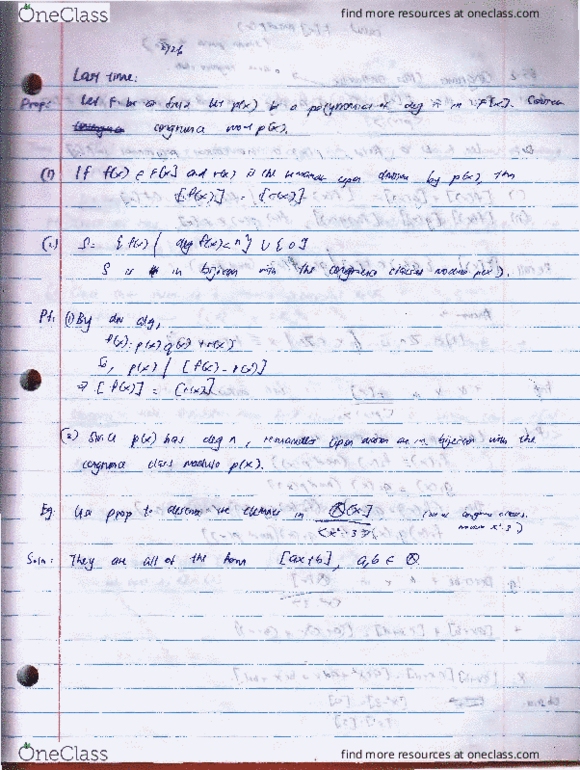 OneClass
find more resources at oneclass.com
Last time:
Prop: Let F be a field Let p(x) be a polynomial of deg n in F[x]. Consider
congruence mod p(x).
(1) If f(x) ∈ F[x] and r(x) is the remainder upon division by p(x), then
[f(x)] = [r(x)].
(2) S = {f(x) | deg f(x) < n} ∪ {0}
S is in bijection with the congruence classes modulo p(x).
Pf: (1) By div alg,
f(x) = p(x)q(x) + r(x)
So, p(x) | [f(x) - r(x)]
⇒ [f(x)] = [r(x)]
(2) Since p(x) has deg n, remainders upon division are in bijection with the
congruence class modulo p(x).
Eg: Use prop to describe the elements in ℚ[x]
(x²-3)
Soln: They are all of the form [ax+b], a,b ∈ ℚ
OneClass
find more resources at oneclass.com